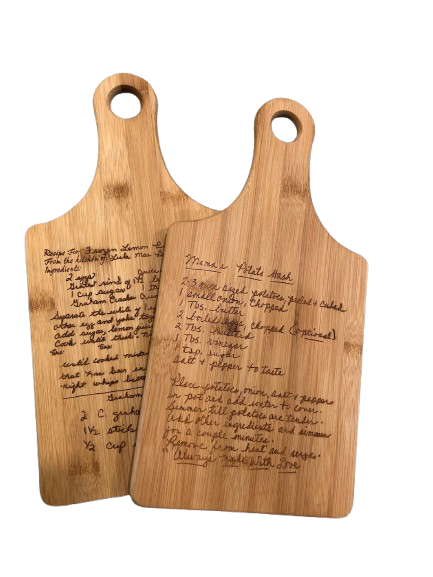 Recipe For Frozen Lemon
From the kitchen of Lula Mae
Ingredients:
2 eggs
Grated rind of 1½
1 cup sugar
Graham Cracker
Separate the white
other egg and yolk
add sugar, lemon juice
Cook until thick.
until cooked
that has been
right whips
Graham
2 C graham
1½ stick
½ cup
Mama's Potato Hash
2-3 nice sized potatoes, peeled + cubed
1 small onion, chopped
1 Tbs. butter
2 boiled eggs, chopped (optional)
2 Tbs. mustard
1 Tbs. vinegar
tsp. sugar
salt + pepper to taste
Place potatoes, onion, salt + pepper
in pot and add water to cover.
Simmer till potatoes are tender.
Add other ingredients and simmer
for a couple minutes.
Remove from heat and serve.
"Always made With Love